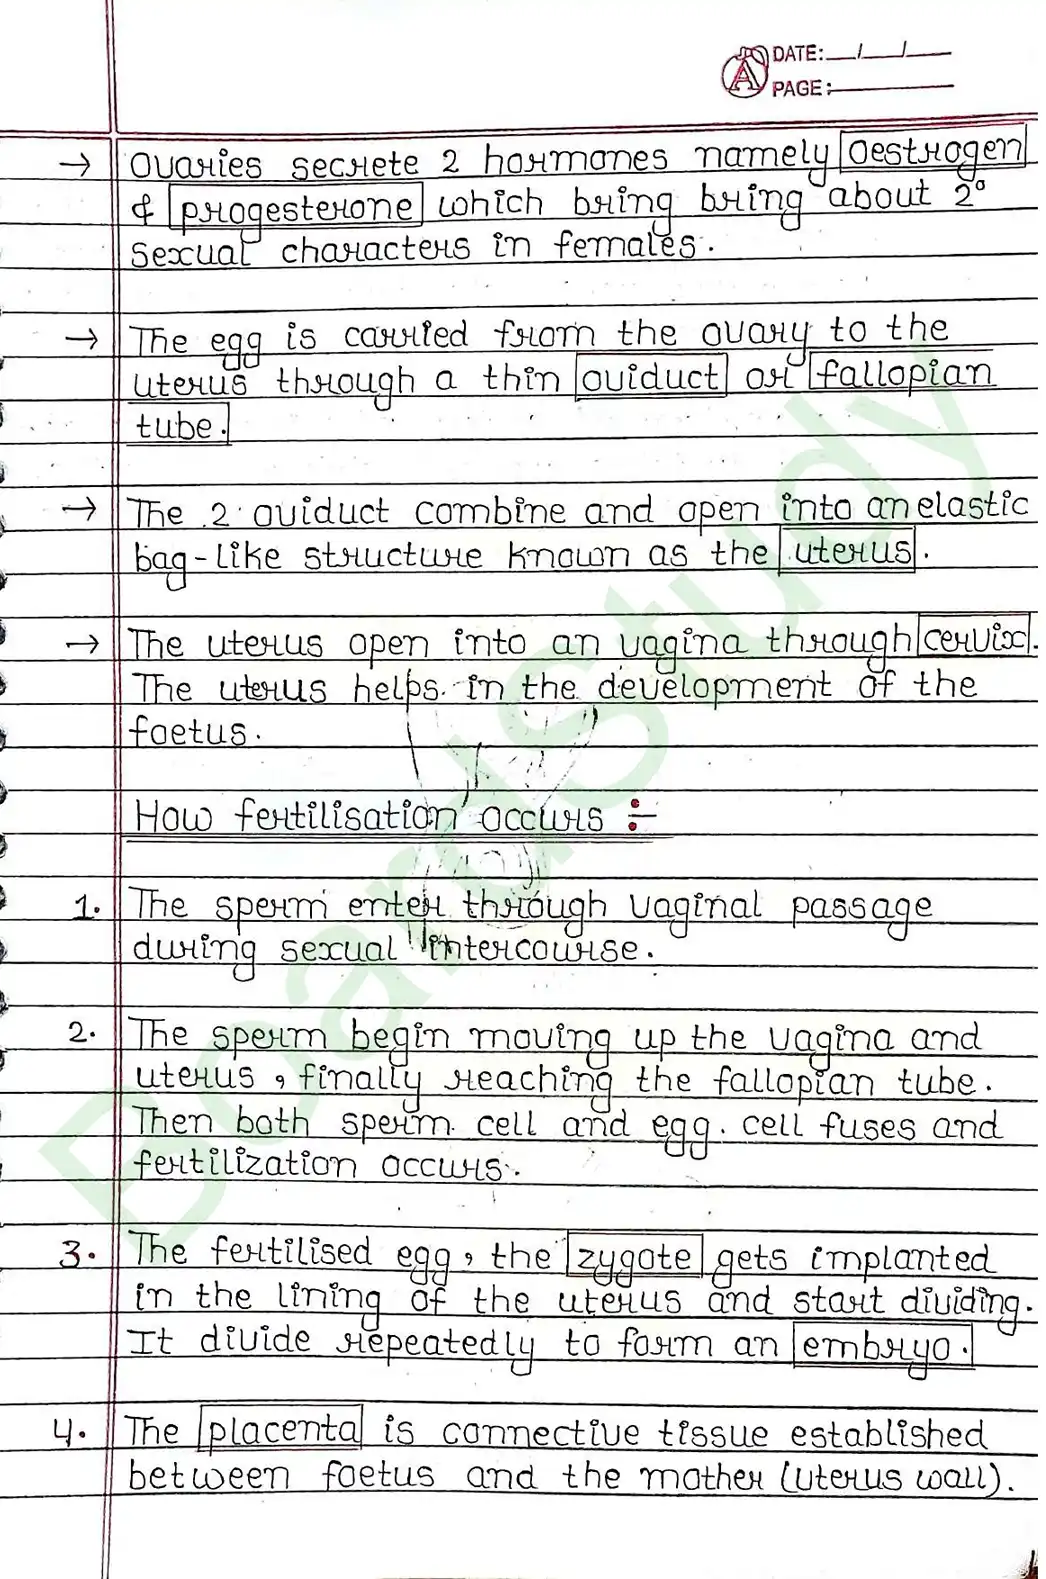 DATE: __/__/__
PAGE:
→ Ovaries secrete 2 hormones namely oestrogen
& progesterone which bring bring about 2°
sexual characters in females.
→ The egg is carried from the ovary to the
uterus through a thin oviduct or fallopian
tube.
→ The 2 oviduct combine and open into an elastic
bag-like structure known as the uterus.
→ The uterus open into an vagina through cervix.
The uterus helps in the development of the
foetus.
How fertilisation occurs :-
1. The sperm enter through vaginal passage
during sexual intercourse.
2. The sperm begin moving up the vagina and
uterus, finally reaching the fallopian tube.
Then both sperm cell and egg cell fuses and
fertilization occurs.
3. The fertilised egg, the zygote gets implanted
in the lining of the uterus and start dividing.
It divide repeatedly to form an embryo.
4. The placenta is connective tissue established
between foetus and the mother (uterus wall).
BoardStudy